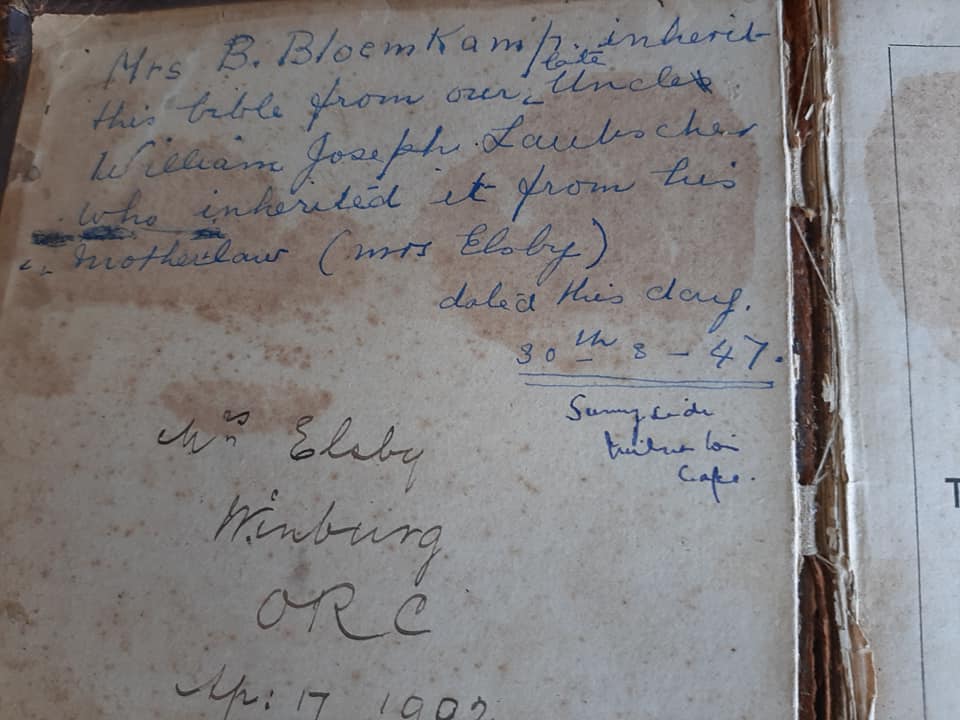 Mrs B. Bloemkamp. inherit-
this bible from our late Uncle
William Joseph Laubscher
who inherited it from his
motherlaw (mrs Elsby)
dated this day.
30th 8 - 47.
Sunnyside
Milnerton
Cape.
Mrs Elsby
Winburg
ORC
Ap: 17 1902
T